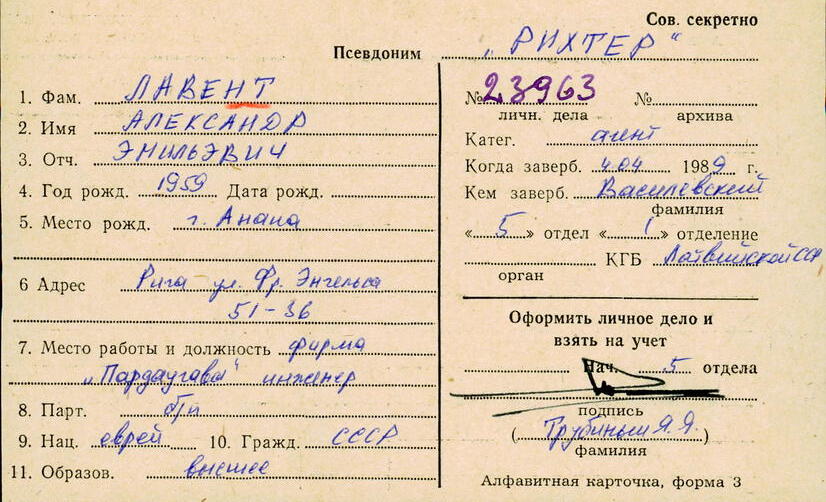 Сов. секретно
Псевдоним „РИХТЕР“
1. Фам. ЛАВЕНТ
2. Имя АЛЕКСАНДР
3. Отч. ЭМИЛЬЭВИЧ
4. Год рожд. 1959 Дата рожд.
5. Место рожд. г. Анапа
6 Адрес Рига ул. Фр. Энгельса
51-36
7. Место работы и должность фирма
„Пардаугава“ инженер
8. Парт. б/п
9. Нац. еврей 10. Гражд. СССР
11. Образов. высшее
№ 23963 №
личн. дела архива
Катег. агент
Когда заверб. 4.04 1989 г.
Кем заверб. Василевский
фамилия
«5» отдел «1» отделение
КГБ Латвийской ССР
орган
Оформить личное дело и
взять на учет
Нач. 5 отдела
подпись
(Трубиньш Я.Я.)
фамилия
Алфавитная карточка, форма 3